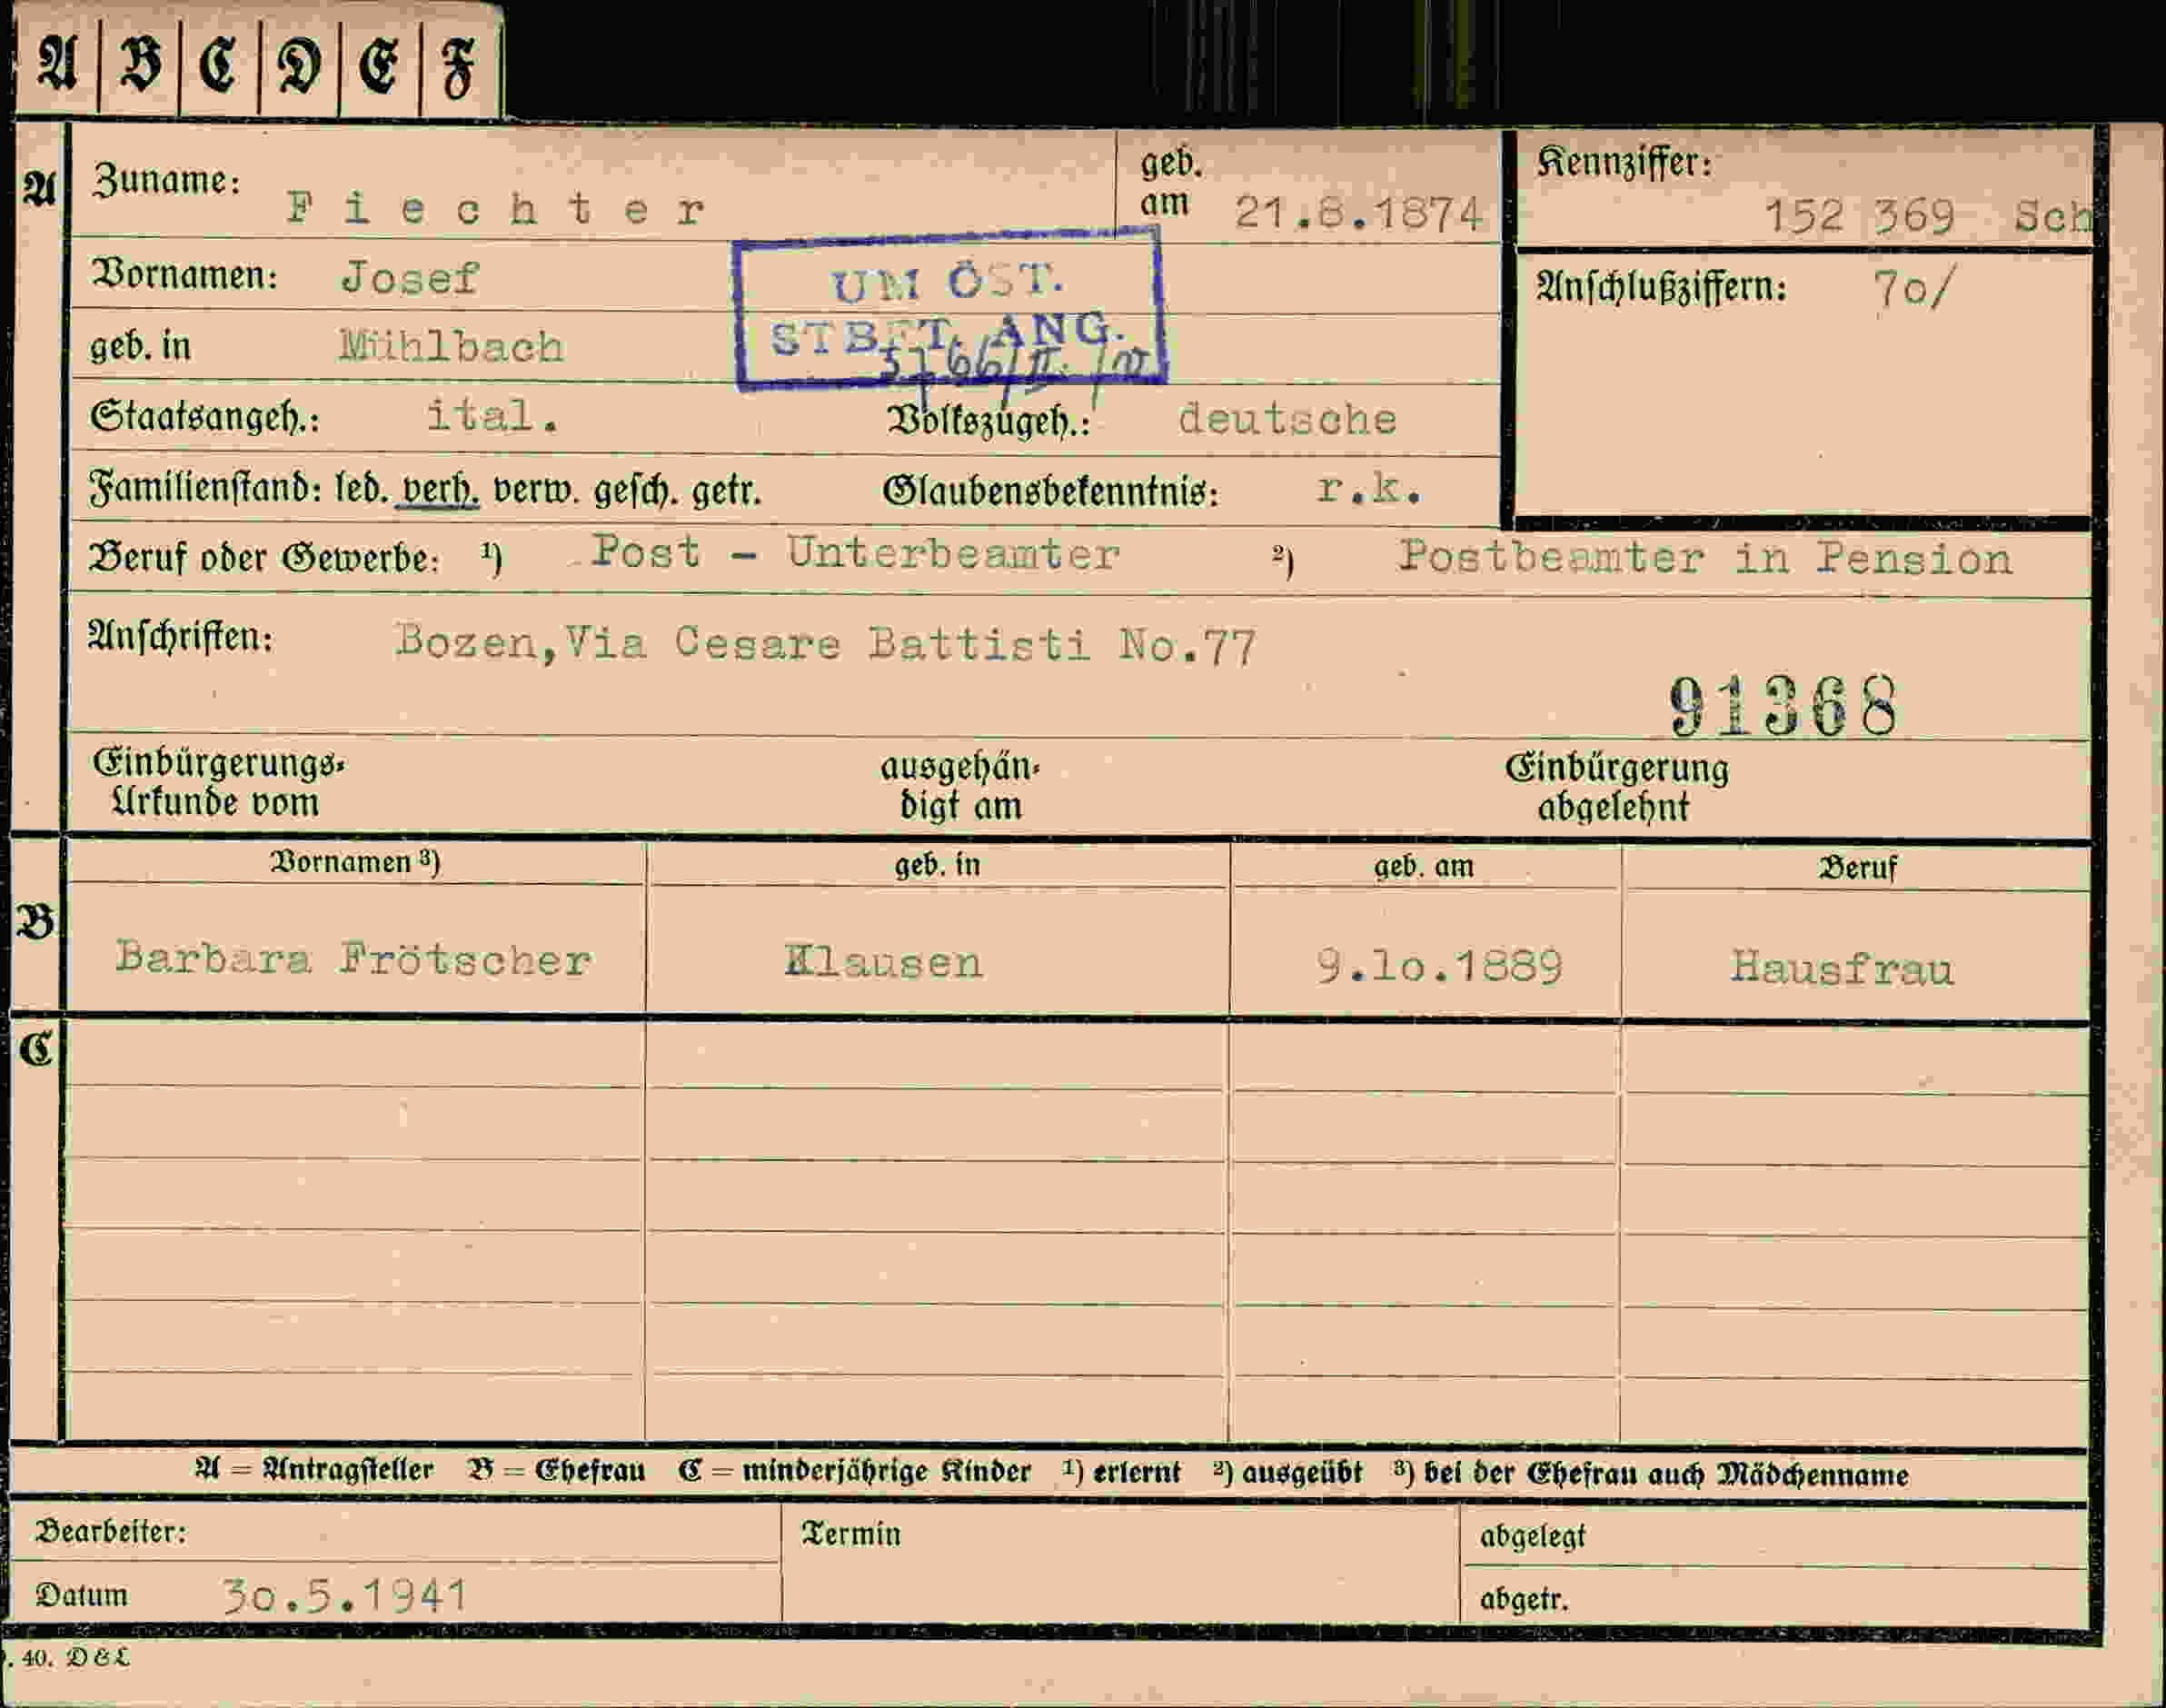 A B C D E F
A Zuname: Fiechter geb. am 21.8.1874 Kennziffer: 152 369 Sch
Vornamen: Josef UM ÖST. Anschlußziffern: 7o/
geb. in Mühlbach STBFT. ANG.
Staatsangeh.: ital. Volkszugeh.: deutsche
Familienstand: led. verh. verw. gesch. getr. Glaubensbekenntnis: r.k.
Beruf oder Gewerbe: ¹) Post - Unterbeamter ²) Postbeamter in Pension
Anschriften: Bozen,Via Cesare Battisti No.77
91368
Einbürgerungs- ausgehän- Einbürgerung
Urkunde vom digt am abgelehnt
Vornamen ³) geb. in geb. am Beruf
B Barbara Frötscher Klausen 9.1o.1889 Hausfrau
C
A = Antragsteller B = Ehefrau C = minderjährige Kinder ¹) erlernt ²) ausgeübt ³) bei der Ehefrau auch Mädchenname
Bearbeiter: Termin abgelegt
Datum 3o.5.1941 abgetr.
. 40. D & L